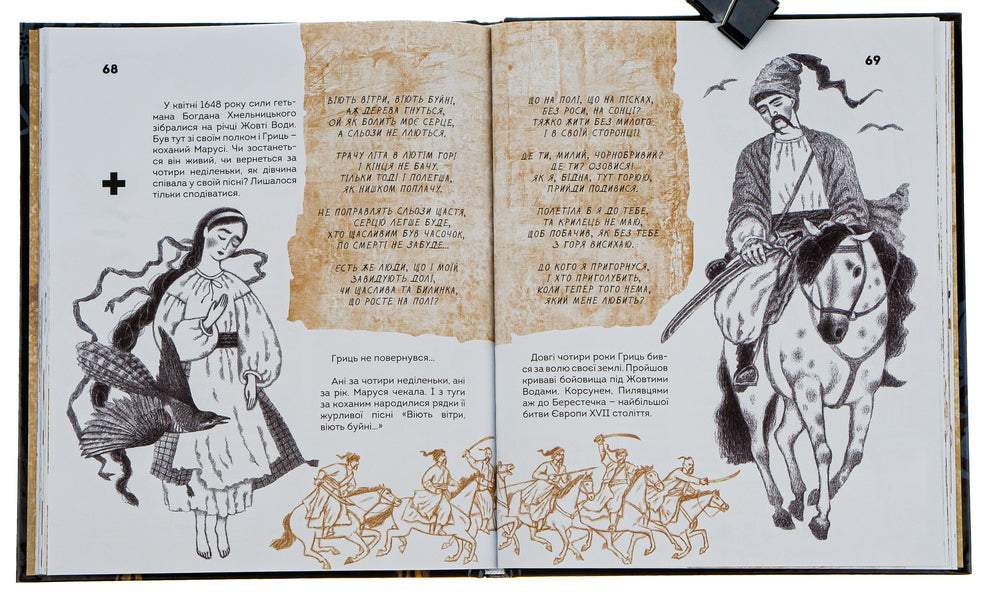 68
У квітні 1648 року сили геть-
мана Богдана Хмельницького
зібралися на річці Жовті Води.
Був тут зі своїм полком і Гриць –
коханий Марусі. Чи зостанеть-
ся він живий, чи вернеться за
чотири неділеньки, як дівчина
співала у своїй пісні? Лишалося
тільки сподіватися.
ВІЮТЬ ВІТРИ, ВІЮТЬ БУЙНІ,
АЖ ДЕРЕВА ГНУТЬСЯ,
ОЙ ЯК БОЛИТЬ МОЄ СЕРЦЕ,
А СЛЬОЗИ НЕ ЛЛЮТЬСЯ.
ТРАЧУ ЛІТА В ЛЮТІМ ГОРІ
І КІНЦЯ НЕ БАЧУ.
ТІЛЬКИ ТОДІ І ПОЛЕГША,
ЯК НИШКОМ ПОПЛАЧУ.
НЕ ПОПРАВЛЯТЬ СЛЬОЗИ ЩАСТЯ,
СЕРЦЮ ЛЕГШЕ БУДЕ,
ХТО ЩАСЛИВИМ БУВ ЧАСОЧОК,
ПО СМЕРТІ НЕ ЗАБУДЕ...
ЄСТЬ ЖЕ ЛЮДИ, ЩО І МОЇЙ
ЗАВИДУЮТЬ ДОЛІ.
ЧИ ЩАСЛИВА ТА БИЛИНКА,
ЩО РОСТЕ НА ПОЛІ?
Гриць не повернувся...
Ані за чотири неділеньки, ані
за рік. Маруся чекала. І з туги
за коханим народилися рядки її
журливої пісні «Віють вітри,
віють буйні...»
69
ЩО НА ПОЛІ, ЩО НА ПІСКАХ,
БЕЗ РОСИ, НА СОНЦІ?
ТЯЖКО ЖИТИ БЕЗ МИЛОГО
І В СВОЇЙ СТОРОНЦІ!
ДЕ ТИ, МИЛИЙ, ЧОРНОБРИВИЙ?
ДЕ ТИ? ОЗОВИСЯ!
ЯК Я, БІДНА, ТУТ ГОРЮЮ,
ПРИЙДИ ПОДИВИСЯ.
ПОЛЕТІЛА Б Я ДО ТЕБЕ,
ТА КРИЛЕЦЬ НЕ МАЮ,
ЩОБ ПОБАЧИВ, ЯК БЕЗ ТЕБЕ
З ГОРЯ ВИСИХАЮ.
ДО КОГО Я ПРИГОРНУСЯ,
І ХТО ПРИГОЛУБИТЬ,
КОЛИ ТЕПЕР ТОГО НЕМА,
ЯКИЙ МЕНЕ ЛЮБИТЬ?
Довгі чотири роки Гриць бив-
ся за волю своєї землі. Пройшов
криваві бойовища під Жовтими
Водами, Корсунем, Пилявцями
аж до Берестечка – найбільшої
битви Європи XVII століття.